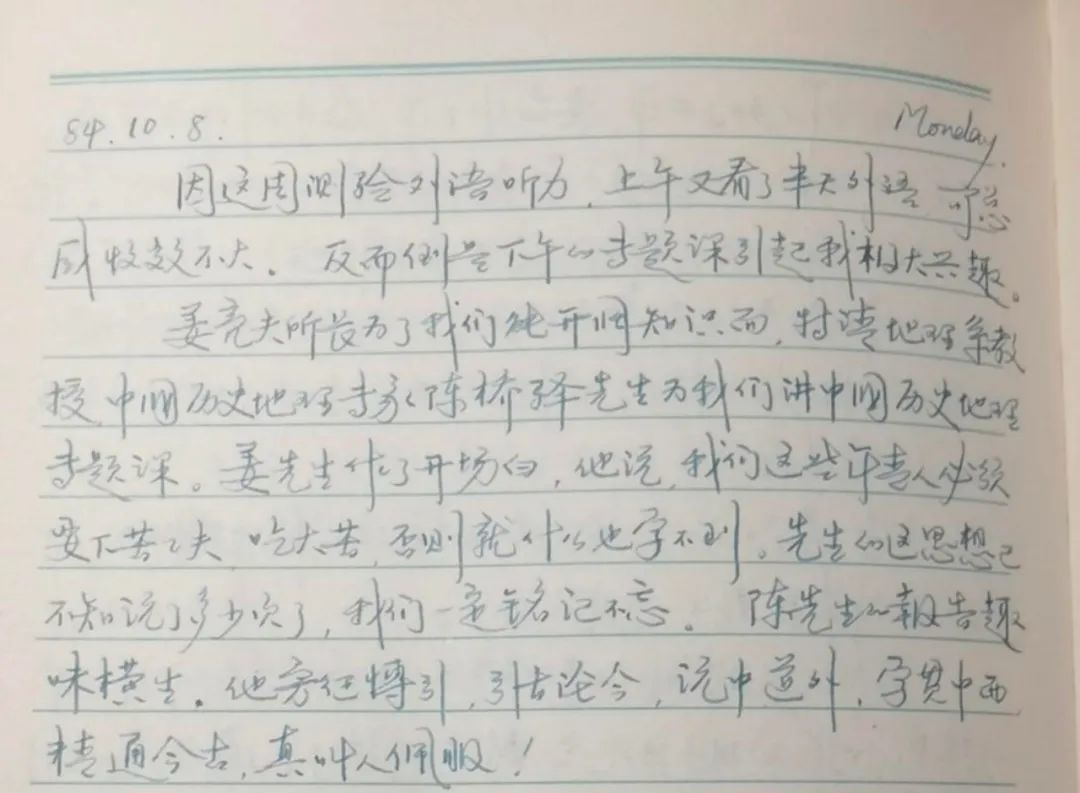 84.10.8. Monday.
因这周测验外语听力，上午又看了半天外语，可总
感收效不大。反而倒是下午的专题课引起我极大兴趣。
姜亮夫所长为了我们能开阔知识面，特请地理系教
授、中国历史地理专家陈桥驿先生为我们讲中国历史地理
专题课。姜先生作了开场白，他说，我们这些年青人必须
要下苦工夫，吃大苦，否则就什么也学不到。先生的这思想已
不知说了多少次了，我们一定铭记不忘。陈先生的报告趣
味横生，他旁征博引，引古论今，说中道外，学贯中西，
精通今古，真叫人佩服！